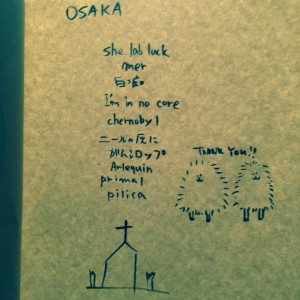 OSAKA
she lab luck
mer
白痴
I'm in no core
chernobyl
ニールの灰に
ガムシロップ
Arlequin
primal
pilica
THANK YOU!!